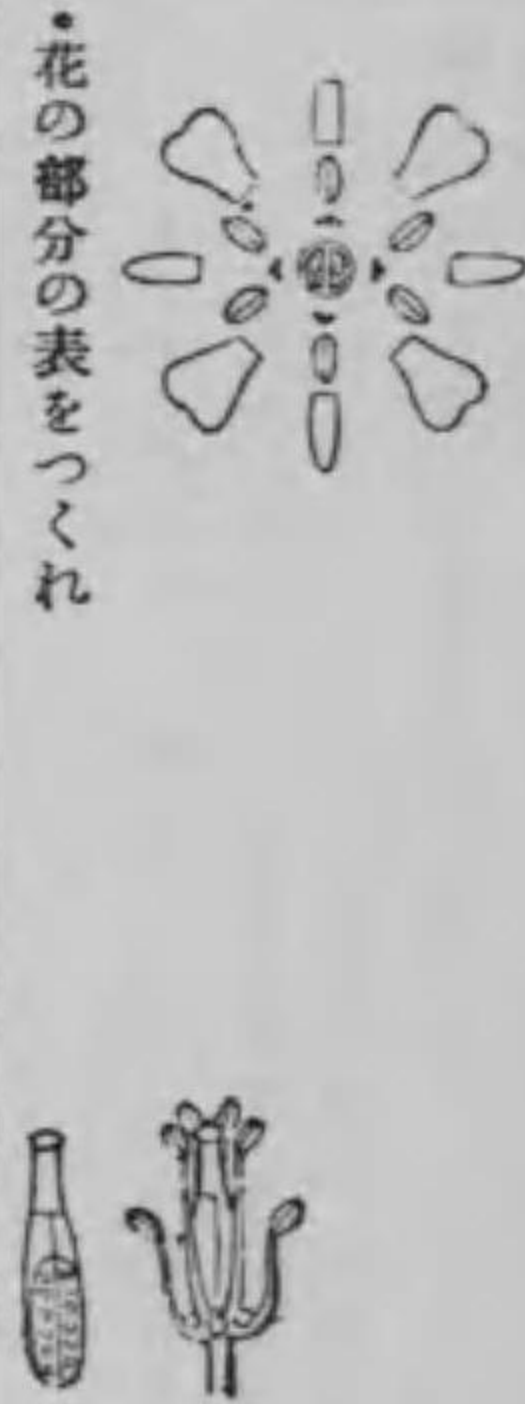 ・花の部分の表をつくれ